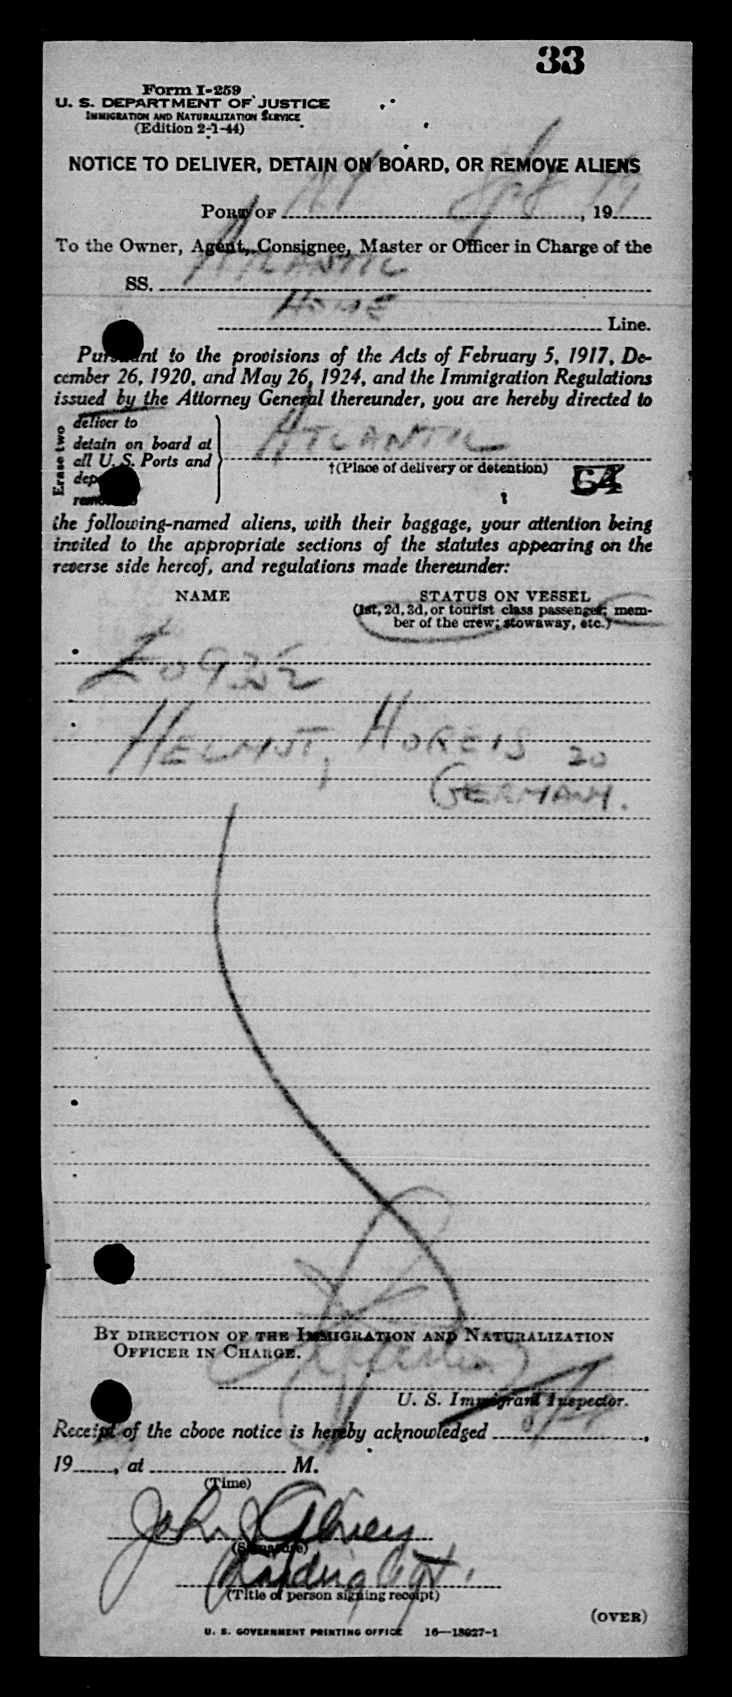 33
Form I-259
U. S. DEPARTMENT OF JUSTICE
IMMIGRATION AND NATURALIZATION SERVICE
(Edition 2-1-44)
NOTICE TO DELIVER, DETAIN ON BOARD, OR REMOVE ALIENS
PORT OF NY, 19
To the Owner, Agent, Consignee, Master or Officer in Charge of the
SS. ATLANTIC
HOME Line.
Pursuant to the provisions of the Acts of February 5, 1917, De-
cember 26, 1920, and May 26, 1924, and the Immigration Regulations
issued by the Attorney General thereunder, you are hereby directed to
Erase two
deliver to
detain on board at
all U. S. Ports and
ATLANTIC
†(Place of delivery or detention)
64
the following-named aliens, with their baggage, your attention being
invited to the appropriate sections of the statutes appearing on the
reverse side hereof, and regulations made thereunder:
NAME STATUS ON VESSEL
(1st, 2d, 3d, or tourist class passenger; mem-
ber of the crew; stowaway, etc.)
HELMUT, HOREIS 20
GERMANY.
BY DIRECTION OF THE IMMIGRATION AND NATURALIZATION
OFFICER IN CHARGE.
U. S. Immigrant Inspector.
Receipt of the above notice is hereby acknowledged ,
19 , at M.
(Time)
John
(Signature)
Landing Agt.
(Title of person signing receipt)
(OVER)
U. S. GOVERNMENT PRINTING OFFICE 16—18027-1